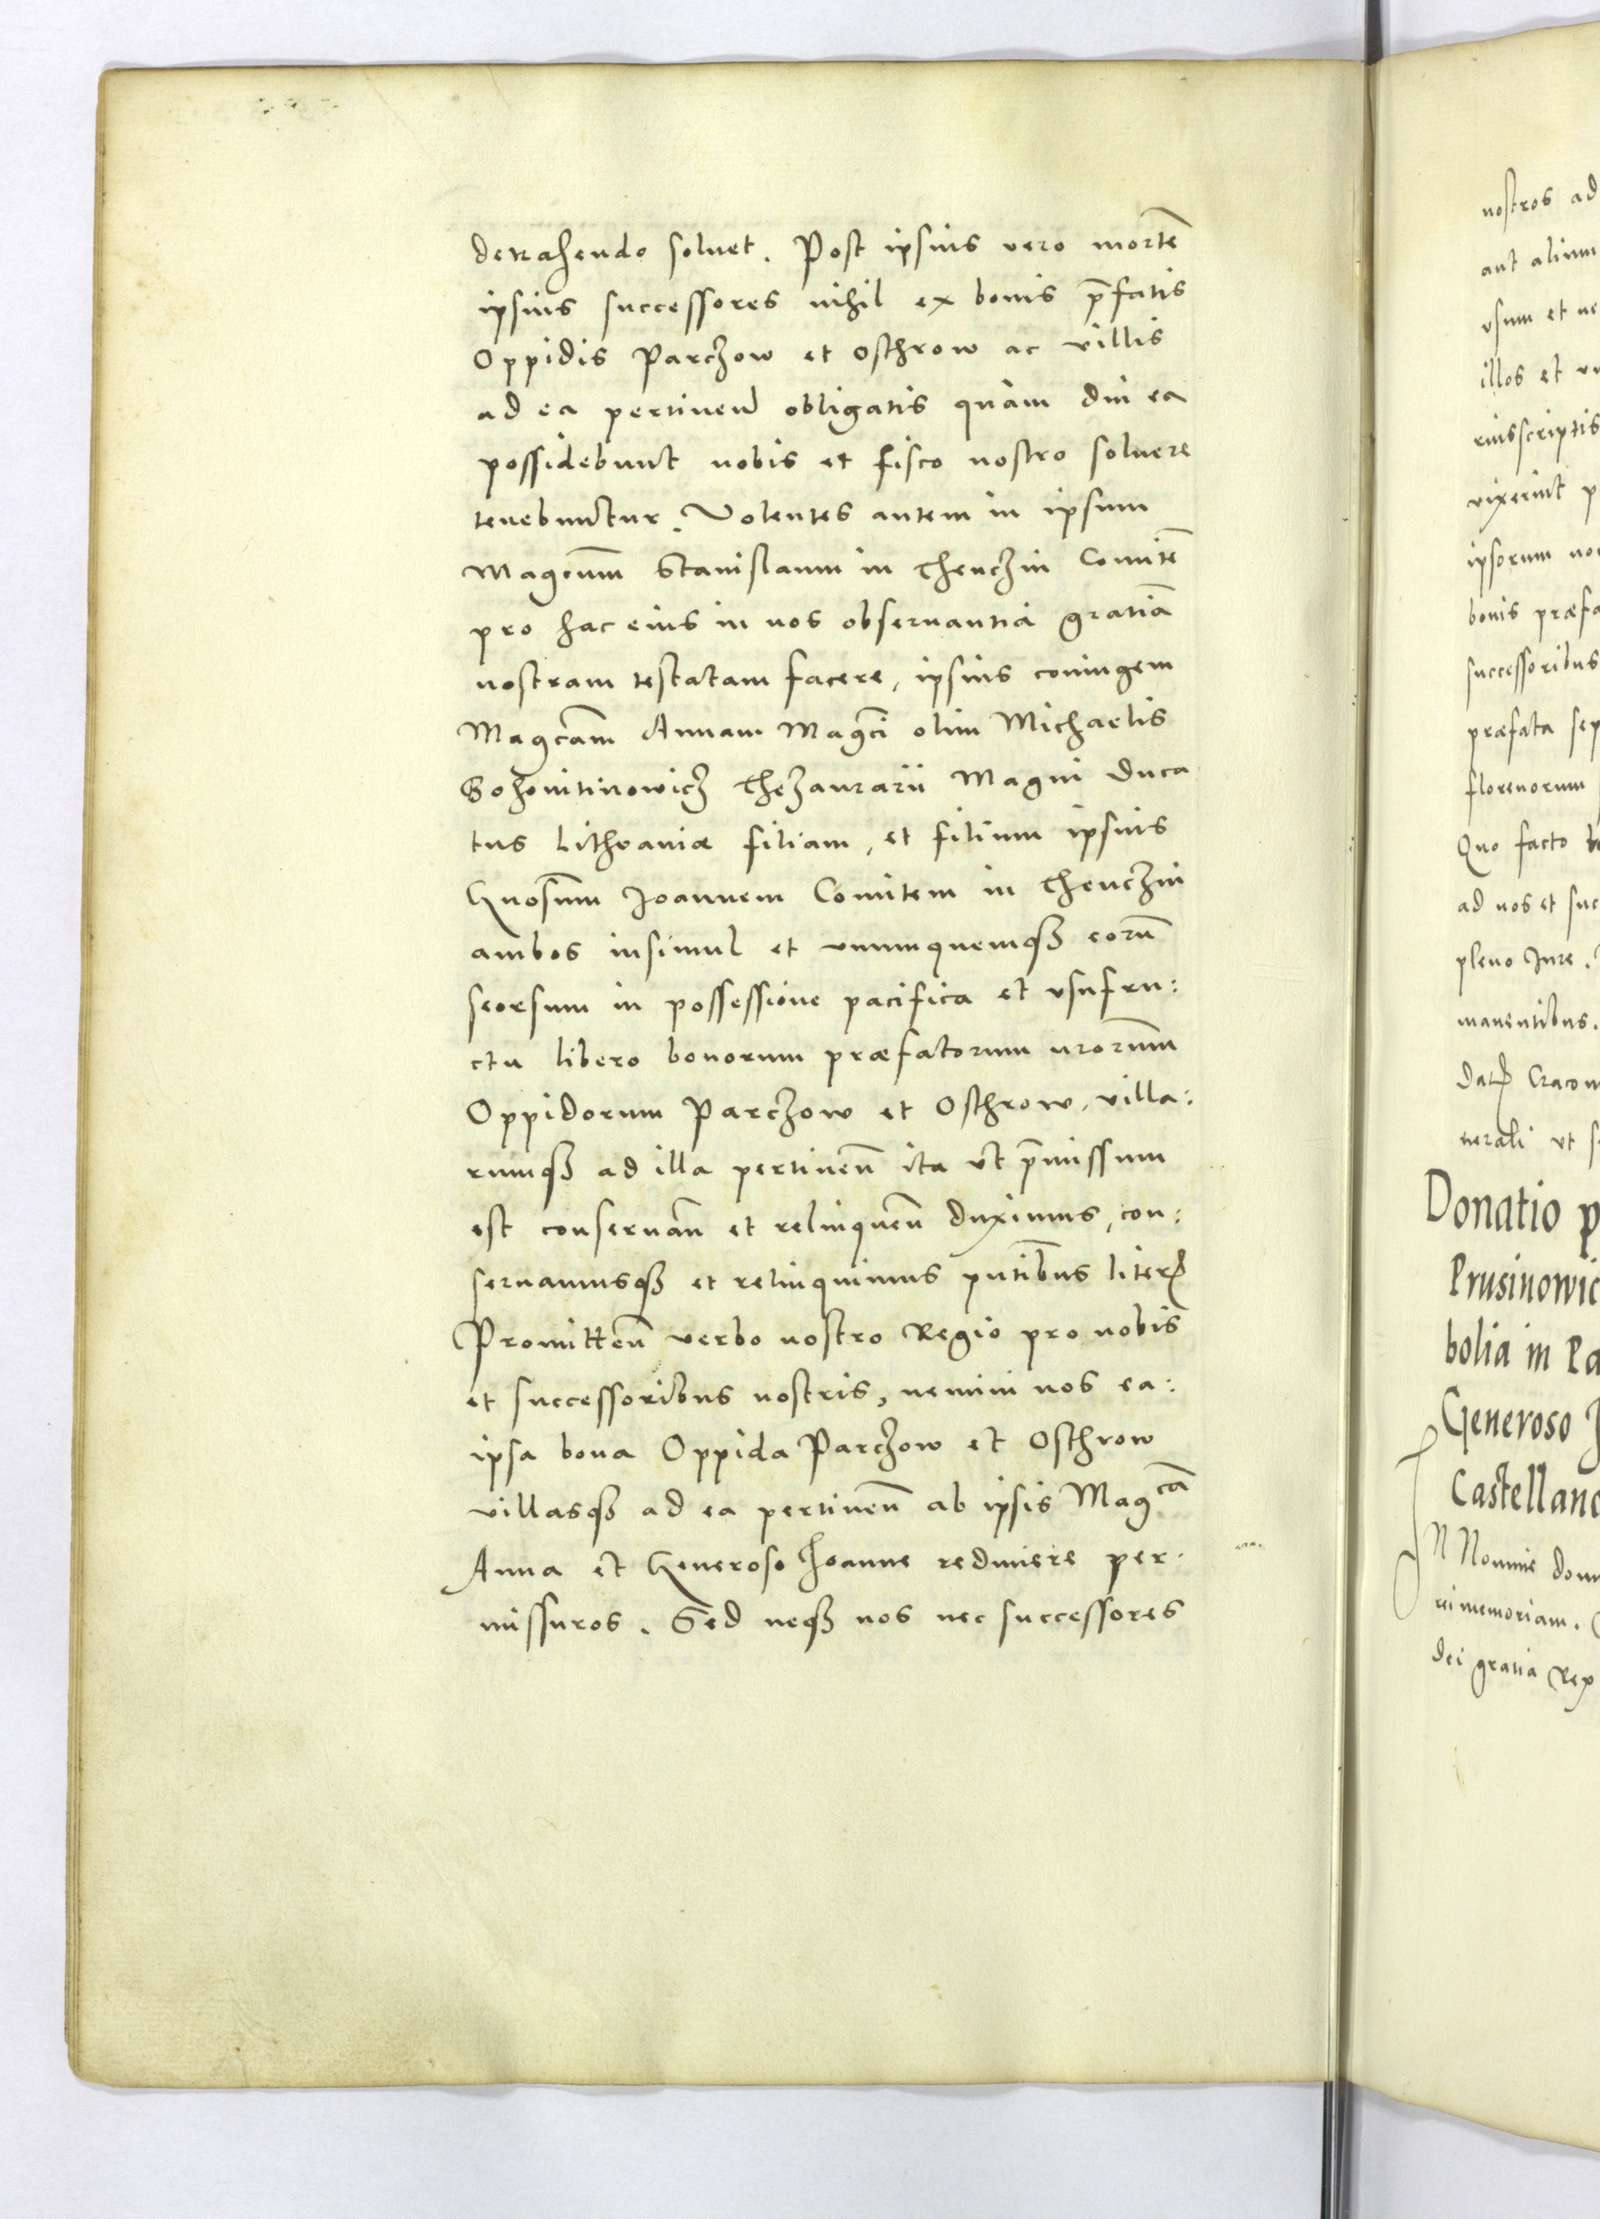 detrahendo soluet. Post ipsius vero mortē
ipsius successores nihil ex bonis p̄fatis
Oppidis Parczow et Osthrow ac villis
ad ea pertinen̄ obligatis quàm diu ea
possidebunt nobis et fisco nostro soluere
tenebuntur. Volentes autem in ipsum
Magcum̄ Stanislaum in Thenczin Comitē
pro hac eius in nos obseruantia gratiā
nostram testatam facere, ipsius coniugem
Magcam̄ Annam Magci̅ olim Michaelis
Thezaurarii Magni Duca
tus Lithvaniæ filiam, et filium ipsius
Gnosum̄ Joannem Comitem in Thenczin
ambos insimul et vnumquemqꝫ eorū
seorsum in possessione pacifica et vsufru:
ctu libero bonorum præfatorum nrorum̄
Oppidorum Parczow et Osthrow, villa:
rumqꝫ ad illa pertinen̄ ita vt p̄missum
est conseruan̄ et relinquen̄ duximus, con:
seruamusqꝫ et relinquimus pn̄tibus literꝭ
Promitten̄ verbo nostro Regio pro nobis
et successoribus nostris, nemini nos ea:
ipsa bona Oppida Parczow et Osthrow
villasqꝫ ad ea pertinen̄ ab ipsis Magcā
Anna et Generoso Joanne redimere per:
missuros. Sed neqꝫ nos nec successores
nostros ad
aut alium
vsum et
illos et
riusscriptis
vixerint p
ipsorum
bonis præfa
successoribus
præfata sep
florenorum
Quo facto
ad nos et suc
pleno Jure.
manentibus.
Datꝭ Cracou
nerali vt s
Donatio p
Prusinowic
bolia in Pa
Generoso J
Castellano
IN Nomine dom
rei memoriam.
dei gratia Rex